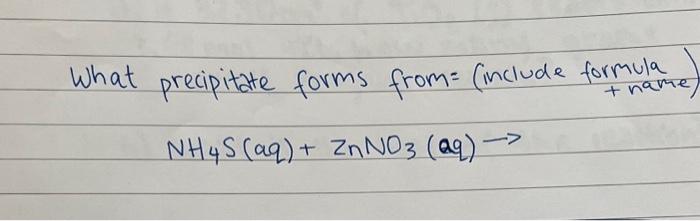 What precipitate forms from= (include formula
+ name)
NH4S (aq) + ZnNO3 (aq) →